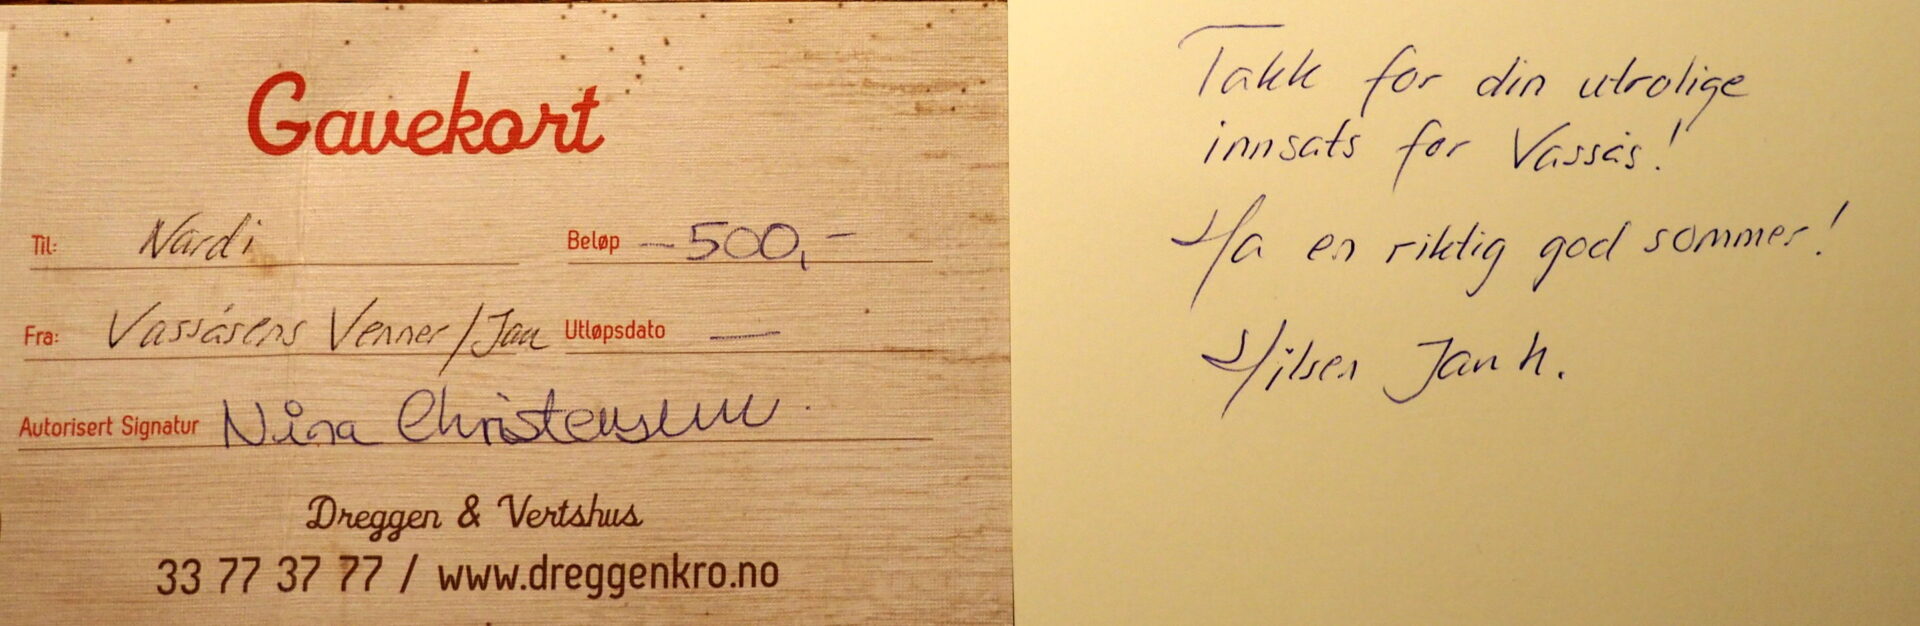 Gavekort
Til: Nardi
Beløp –500,–
Fra: Vassåsens Venner/Jan
Utløpsdato —
Autorisert Signatur Nina Christensen
Dreggen & Vertshus
33 77 37 77 / www.dreggenkro.no
Takk for din utrolige
innsats for Vassås!
Ha en riktig god sommer!
Hilsen Jan h.